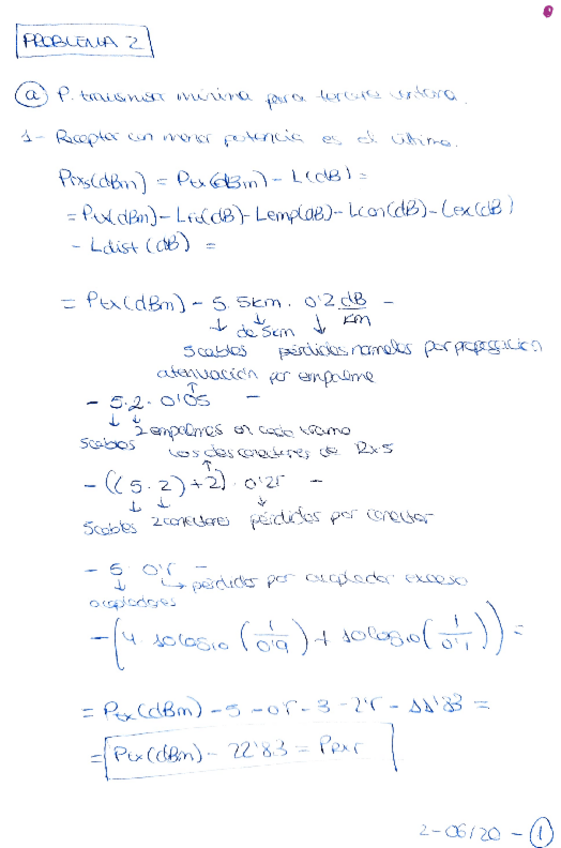 PROBLEMA 2
a P. transmisor mínima para tercera ventana.
1- Receptor con menor potencia es el último.
Prx5(dBm) = Ptx(dBm) - L(dB) =
= Ptx(dBm) - Lfib(dB) - Lemp(dB) - Lcon(dB) - Lex(dB)
- Ldist(dB) =
= Ptx(dBm) - 5. 5km. 0'2 dB/km -
↓ ↓ ↓
de 5km
5 cables pérdidas normales por propagación
atenuación por empalme
↑
- 5.2. 0'05 -
↓ ↓
2 empalmes en cada tramo
5 cables
los dos conectores de Rx5
↑
- ((5.2)+2). 0'25 -
↓ ↓ ↓
5 cables 2 conectores pérdidas por conector
- 5. 0'5 -
↓ → pérdidas por acoplador exceso
acopladores
- (4. 10log10 (1/0'9) + 10log10 (1/0'1)) =
= Ptx(dBm) - 5 - 0'5 - 3 - 2'5 - 11'83 =
= Ptx(dBm) - 22'83 = Prx5
2-06/20 - 1